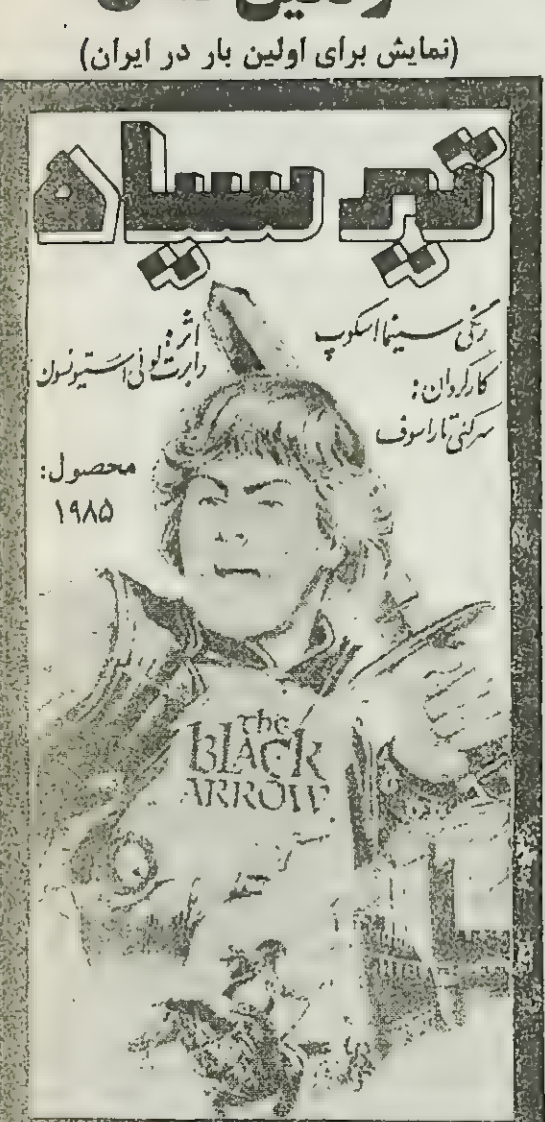 (نمایش برای اولین بار در ایران)
تیر سیاه
رنگی سینما اسکوپ
کارگردان:
سرگئی تاراسوف
اثر:
رابرت لوئی استیونسون
محصول:
۱۹۸۵
the
BLACK
ARROW